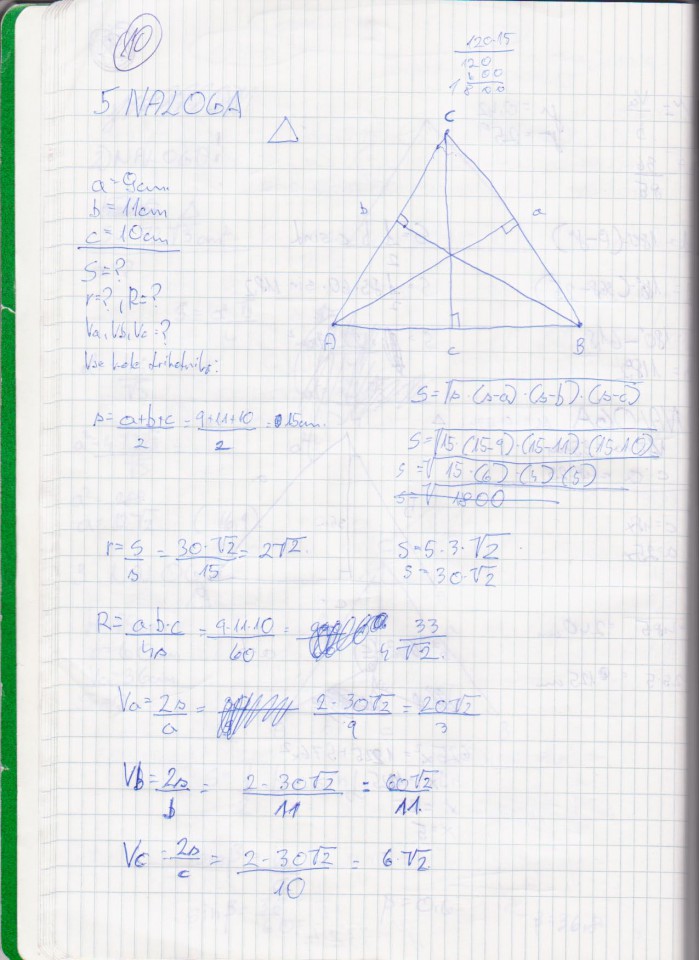 10
120·15
120
600
1800
5 NALOGA
a = 9cm
b = 11cm
c = 10cm
S = ?
r = ?, R = ?
Va, Vb, Vc = ?
C
b
a
A
c
B
s = a+b+c/2 = 9+11+10/2 = 15cm.
S = √s·(s-a)·(s-b)·(s-c)
S = √15·(15-9)·(15-11)·(15-10)
s = √15·(6)·(4)·(5)
s = √1800
r = S/s = 30·√2/15 = 2√2.
S = 5·3·√2
s = 30·√2
R = a·b·c/4s = 9·11·10/60 = 33/4√2.
Va = 2s/a = 2-30√2/9 = 20√2/3
Vb = 2s/b = 2-30√2/11 = 60√2/11.
Vc = 2s/c = 2-30√2/10 = 6·√2